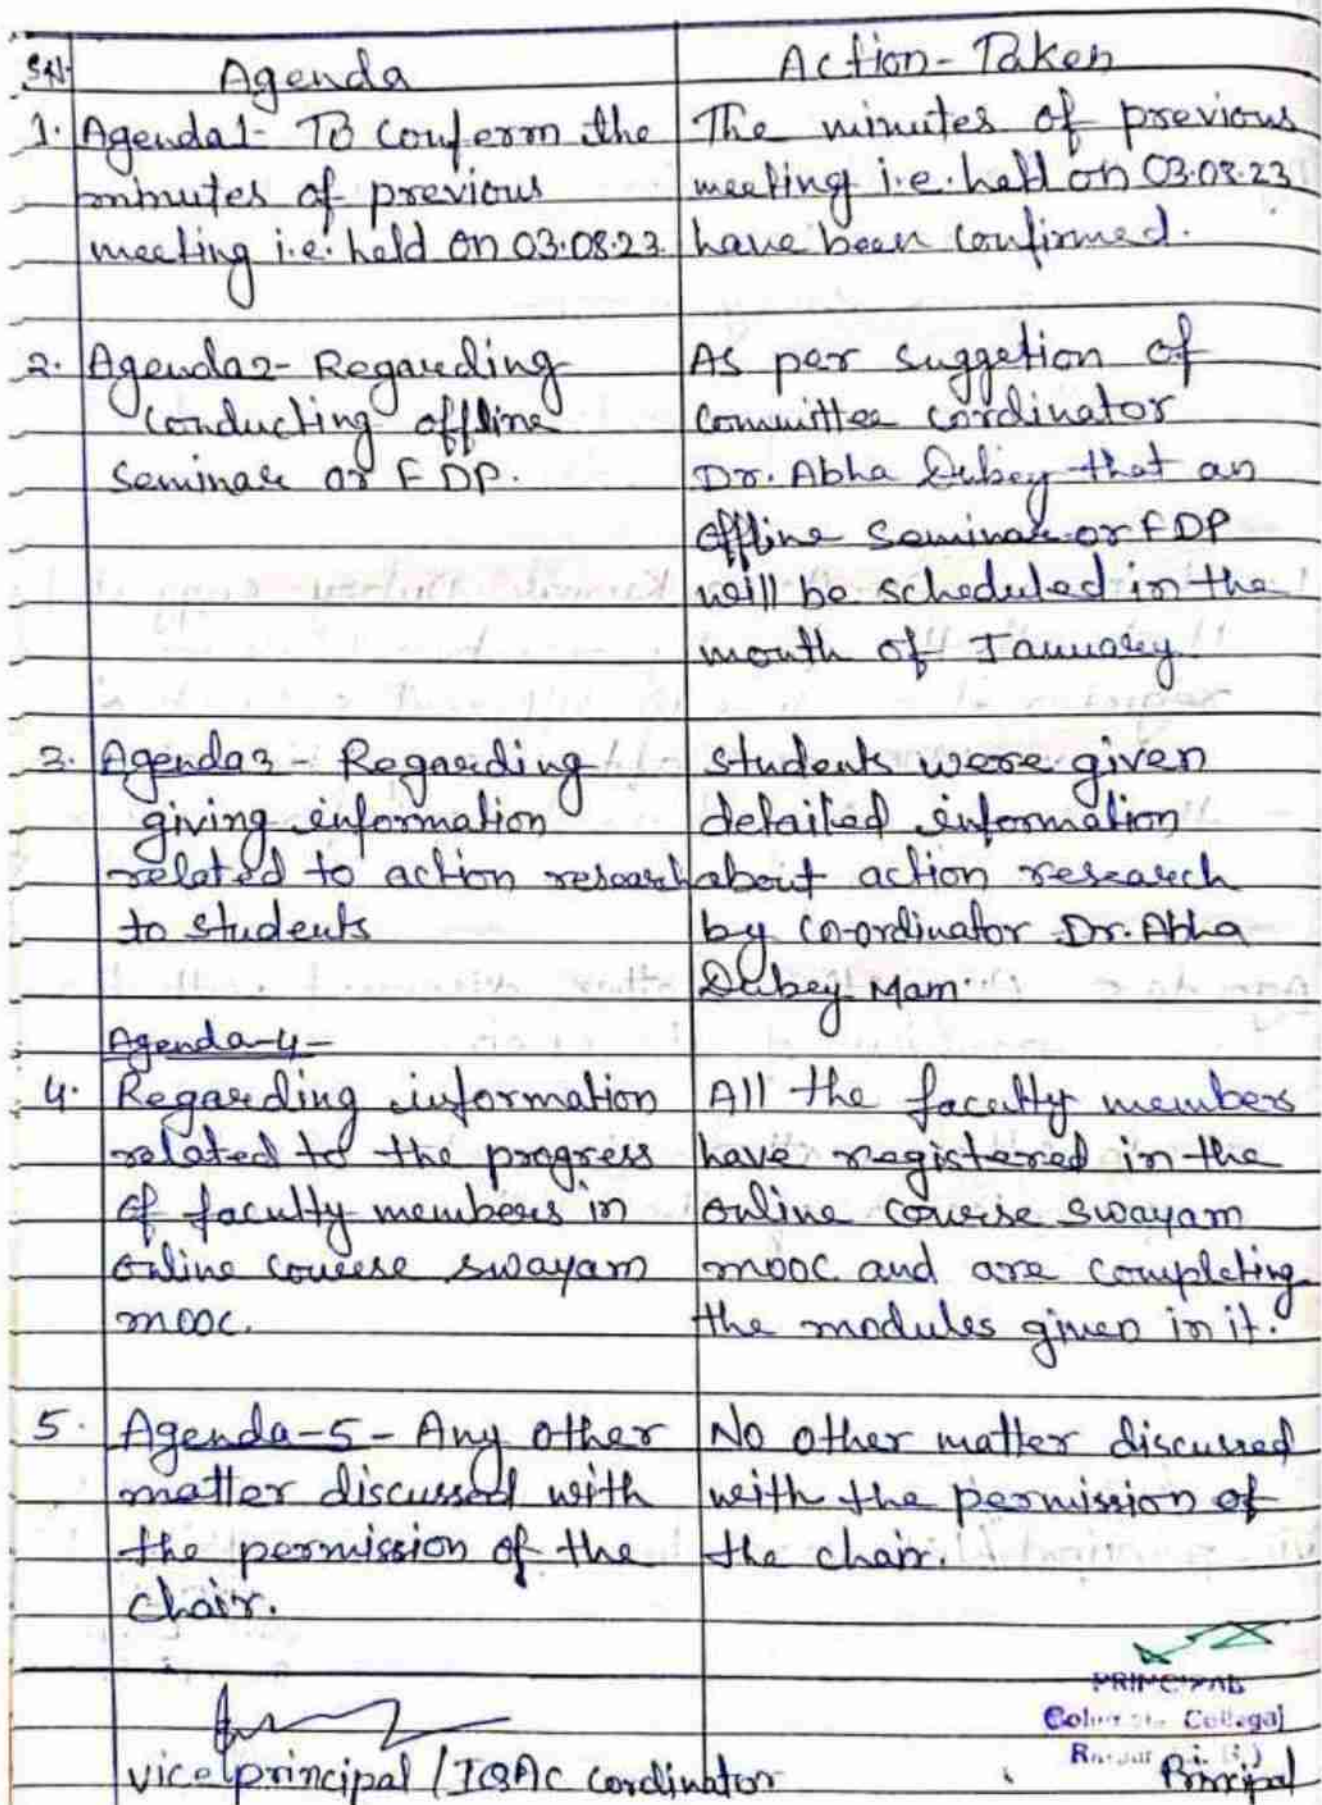 S.N. Agenda Action-Taken
1. Agenda1- To Conferm the
minutes of previous
meeting i.e. held on 03.08.23
The minutes of previous
meeting i.e. held on 03.08.23
have been confirmed.
2. Agenda2- Regarding
conducting offline
Seminar or FDP.
As per suggetion of
Committee cordinator
Dr. Abha Dubey that an
offline Seminar or FDP
will be scheduled in the
month of January
3. Agenda3 - Regarding
giving information
related to action research
to students
students were given
detailed information
about action research
by co-ordinator Dr. Abha
Dubey Mam.
Agenda-4-
4. Regarding information
related to the progress
of faculty members in
online course swayam
mooc.
All the faculty members
have registered in the
online course swayam
mooc and are completing
the modules given in it.
5. Agenda-5- Any other
matter discussed with
the permission of the
chair.
No other matter discussed
with the permission of
the chair.
PRINCIPAL
Vice principal / IQAC Cordinator
Principal